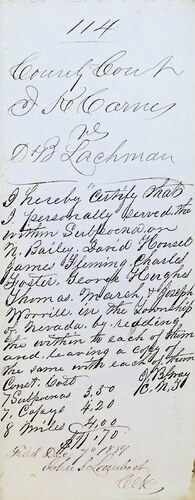 114
County Court
J H Carnes
vs
D B Lachman
I hereby certify that
I personally served the
within Subpoena on
N. Bailey. David Housel
James Fleming. Charles
Foster. George Hughes
Thomas. Marsh & Joseph
Worrill in the township
of Nevada. by redding
the within to each of them
and. leaving a copy of
the same with each of them
Const. Cost J. B. Gray
7 Subpenas 3.50 C. N. T
7. Copeys 4.20
8 miles 4.00
$11.70
Filed Dec 7th
John S. Lambert
Clk